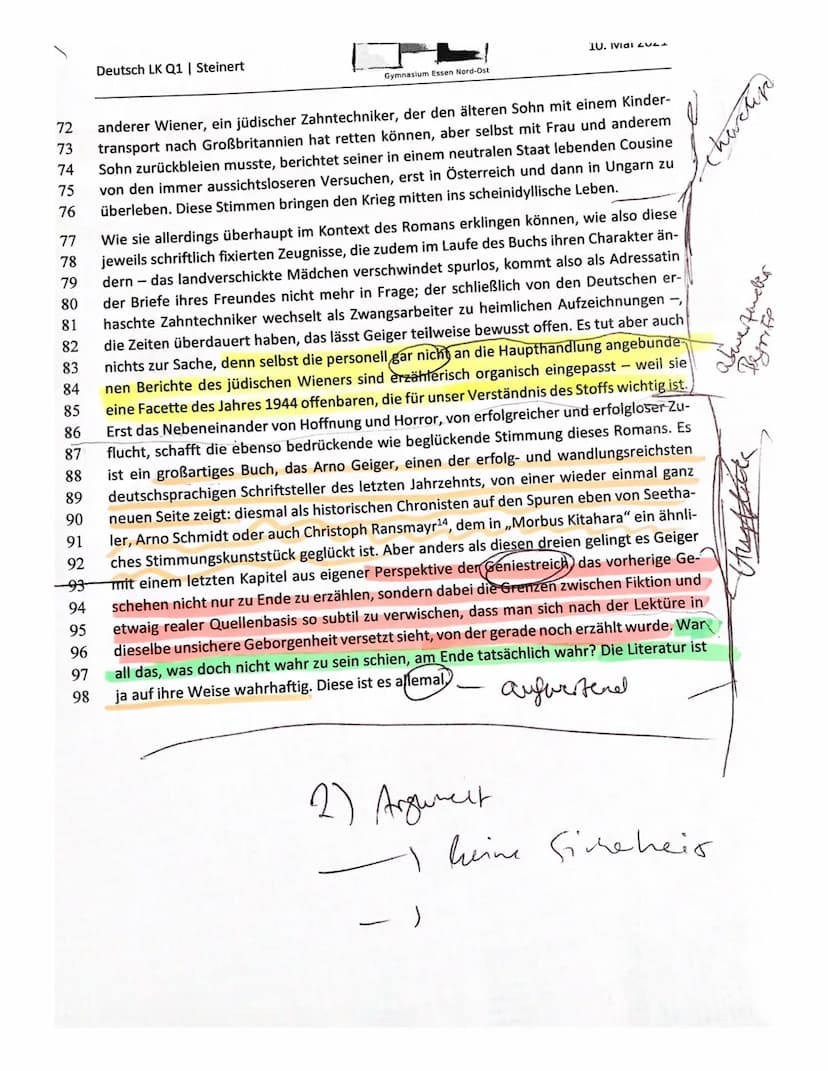 Deutsch LK Q1 | Steinert
Gymnasium Essen Nord-Ost
72 anderer Wiener, ein jüdischer Zahntechniker, der den älteren Sohn mit einem Kinder-
73 transport nach Großbritannien hat retten können, aber selbst mit Frau und anderem
74 Sohn zurückbleien musste, berichtet seiner in einem neutralen Staat lebenden Cousine
75 von den immer aussichtsloseren Versuchen, erst in Österreich und dann in Ungarn zu
76 überleben. Diese Stimmen bringen den Krieg mitten ins scheinidyllische Leben.
77 Wie sie allerdings überhaupt im Kontext des Romans erklingen können, wie also diese
78 jeweils schriftlich fixierten Zeugnisse, die zudem im Laufe des Buchs ihren Charakter än-
79 dern – das landverschickte Mädchen verschwindet spurlos, kommt also als Adressatin
80 der Briefe ihres Freundes nicht mehr in Frage; der schließlich von den Deutschen er-
81 haschte Zahntechniker wechselt als Zwangsarbeiter zu heimlichen Aufzeichnungen –,
82 die Zeiten überdauert haben, das lässt Geiger teilweise bewusst offen. Es tut aber auch
83 nichts zur Sache, denn selbst die personell gar nicht an die Haupthandlung angebunde-
84 nen Berichte des jüdischen Wieners sind erzählerisch organisch eingepasst – weil sie
85 eine Facette des Jahres 1944 offenbaren, die für unser Verständnis des Stoffs wichtig ist.
86 Erst das Nebeneinander von Hoffnung und Horror, von erfolgreicher und erfolgloser Zu-
87 flucht, schafft die ebenso bedrückende wie beglückende Stimmung dieses Romans. Es
88 ist ein großartiges Buch, das Arno Geiger, einen der erfolg- und wandlungsreichsten
89 deutschsprachigen Schriftsteller des letzten Jahrzehnts, von einer wieder einmal ganz
90 neuen Seite zeigt: diesmal als historischen Chronisten auf den Spuren eben von Seetha-
91 ler, Arno Schmidt oder auch Christoph Ransmayr14, dem in „Morbus Kitahara“ ein ähnli-
92 ches Stimmungskunststück geglückt ist. Aber anders als diesen dreien gelingt es Geiger
93 mit einem letzten Kapitel aus eigener Perspektive der Geniestreich, das vorherige Ge-
94 schehen nicht nur zu Ende zu erzählen, sondern dabei die Grenzen zwischen Fiktion und
95 etwaig realer Quellenbasis so subtil zu verwischen, dass man sich nach der Lektüre in
96 dieselbe unsichere Geborgenheit versetzt sieht, von der gerade noch erzählt wurde. War
97 all das, was doch nicht wahr zu sein schien, am Ende tatsächlich wahr? Die Literatur ist
98 ja auf ihre Weise wahrhaftig. Diese ist es allemal. – aufwertend
2) Argument
keine